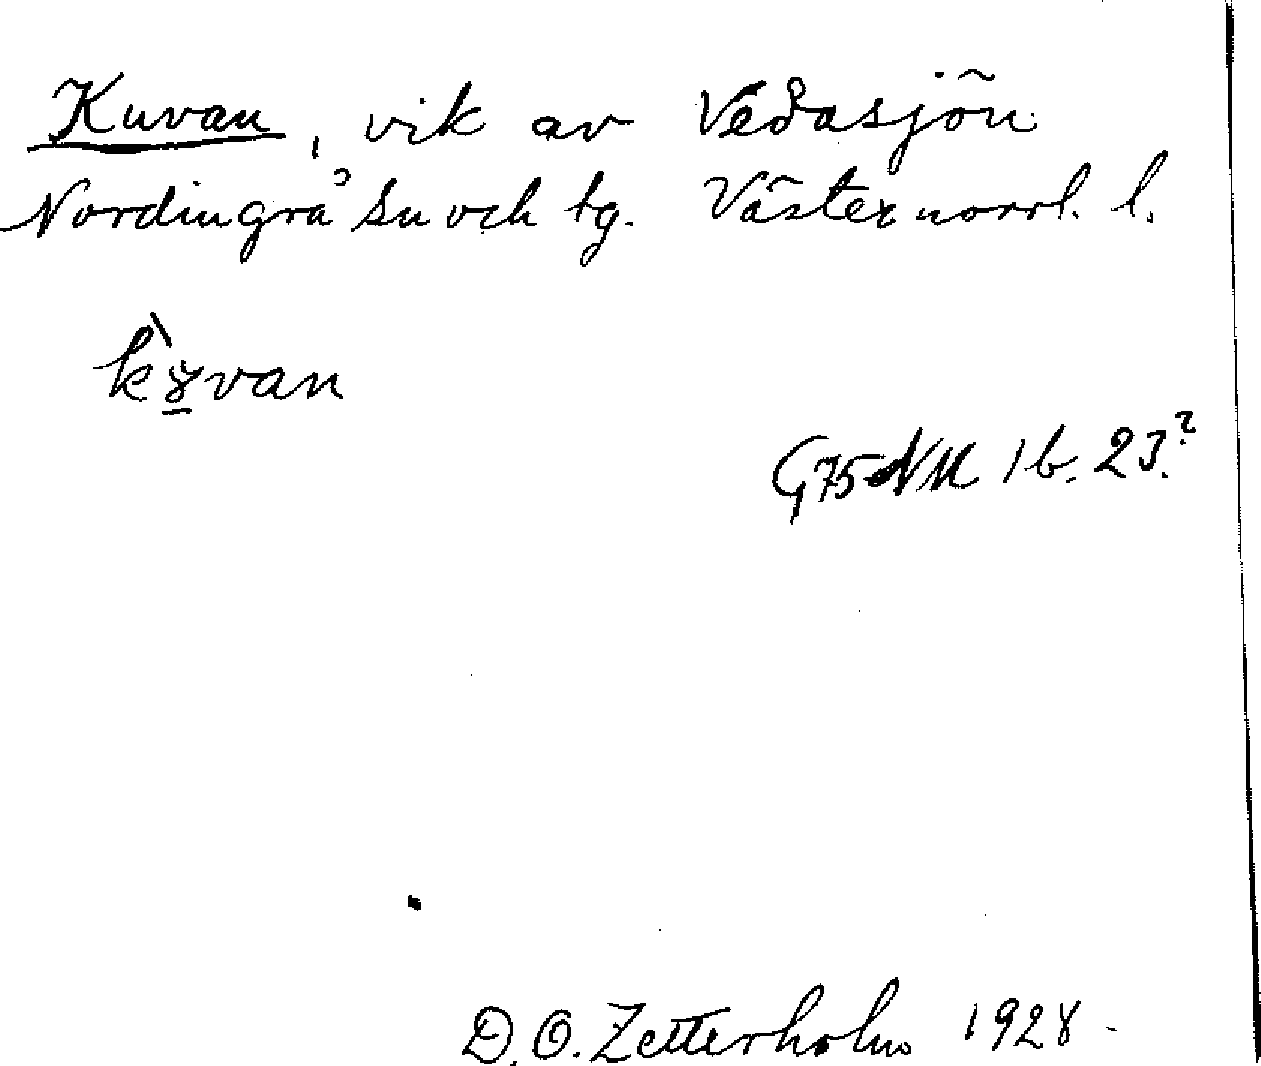 Kuvan, vik av Vedasjön
Nordingrå sn och tg. Västernorrl. l.
van
G75 NU 1b. 23.?
D. O. Zetterholm 1928